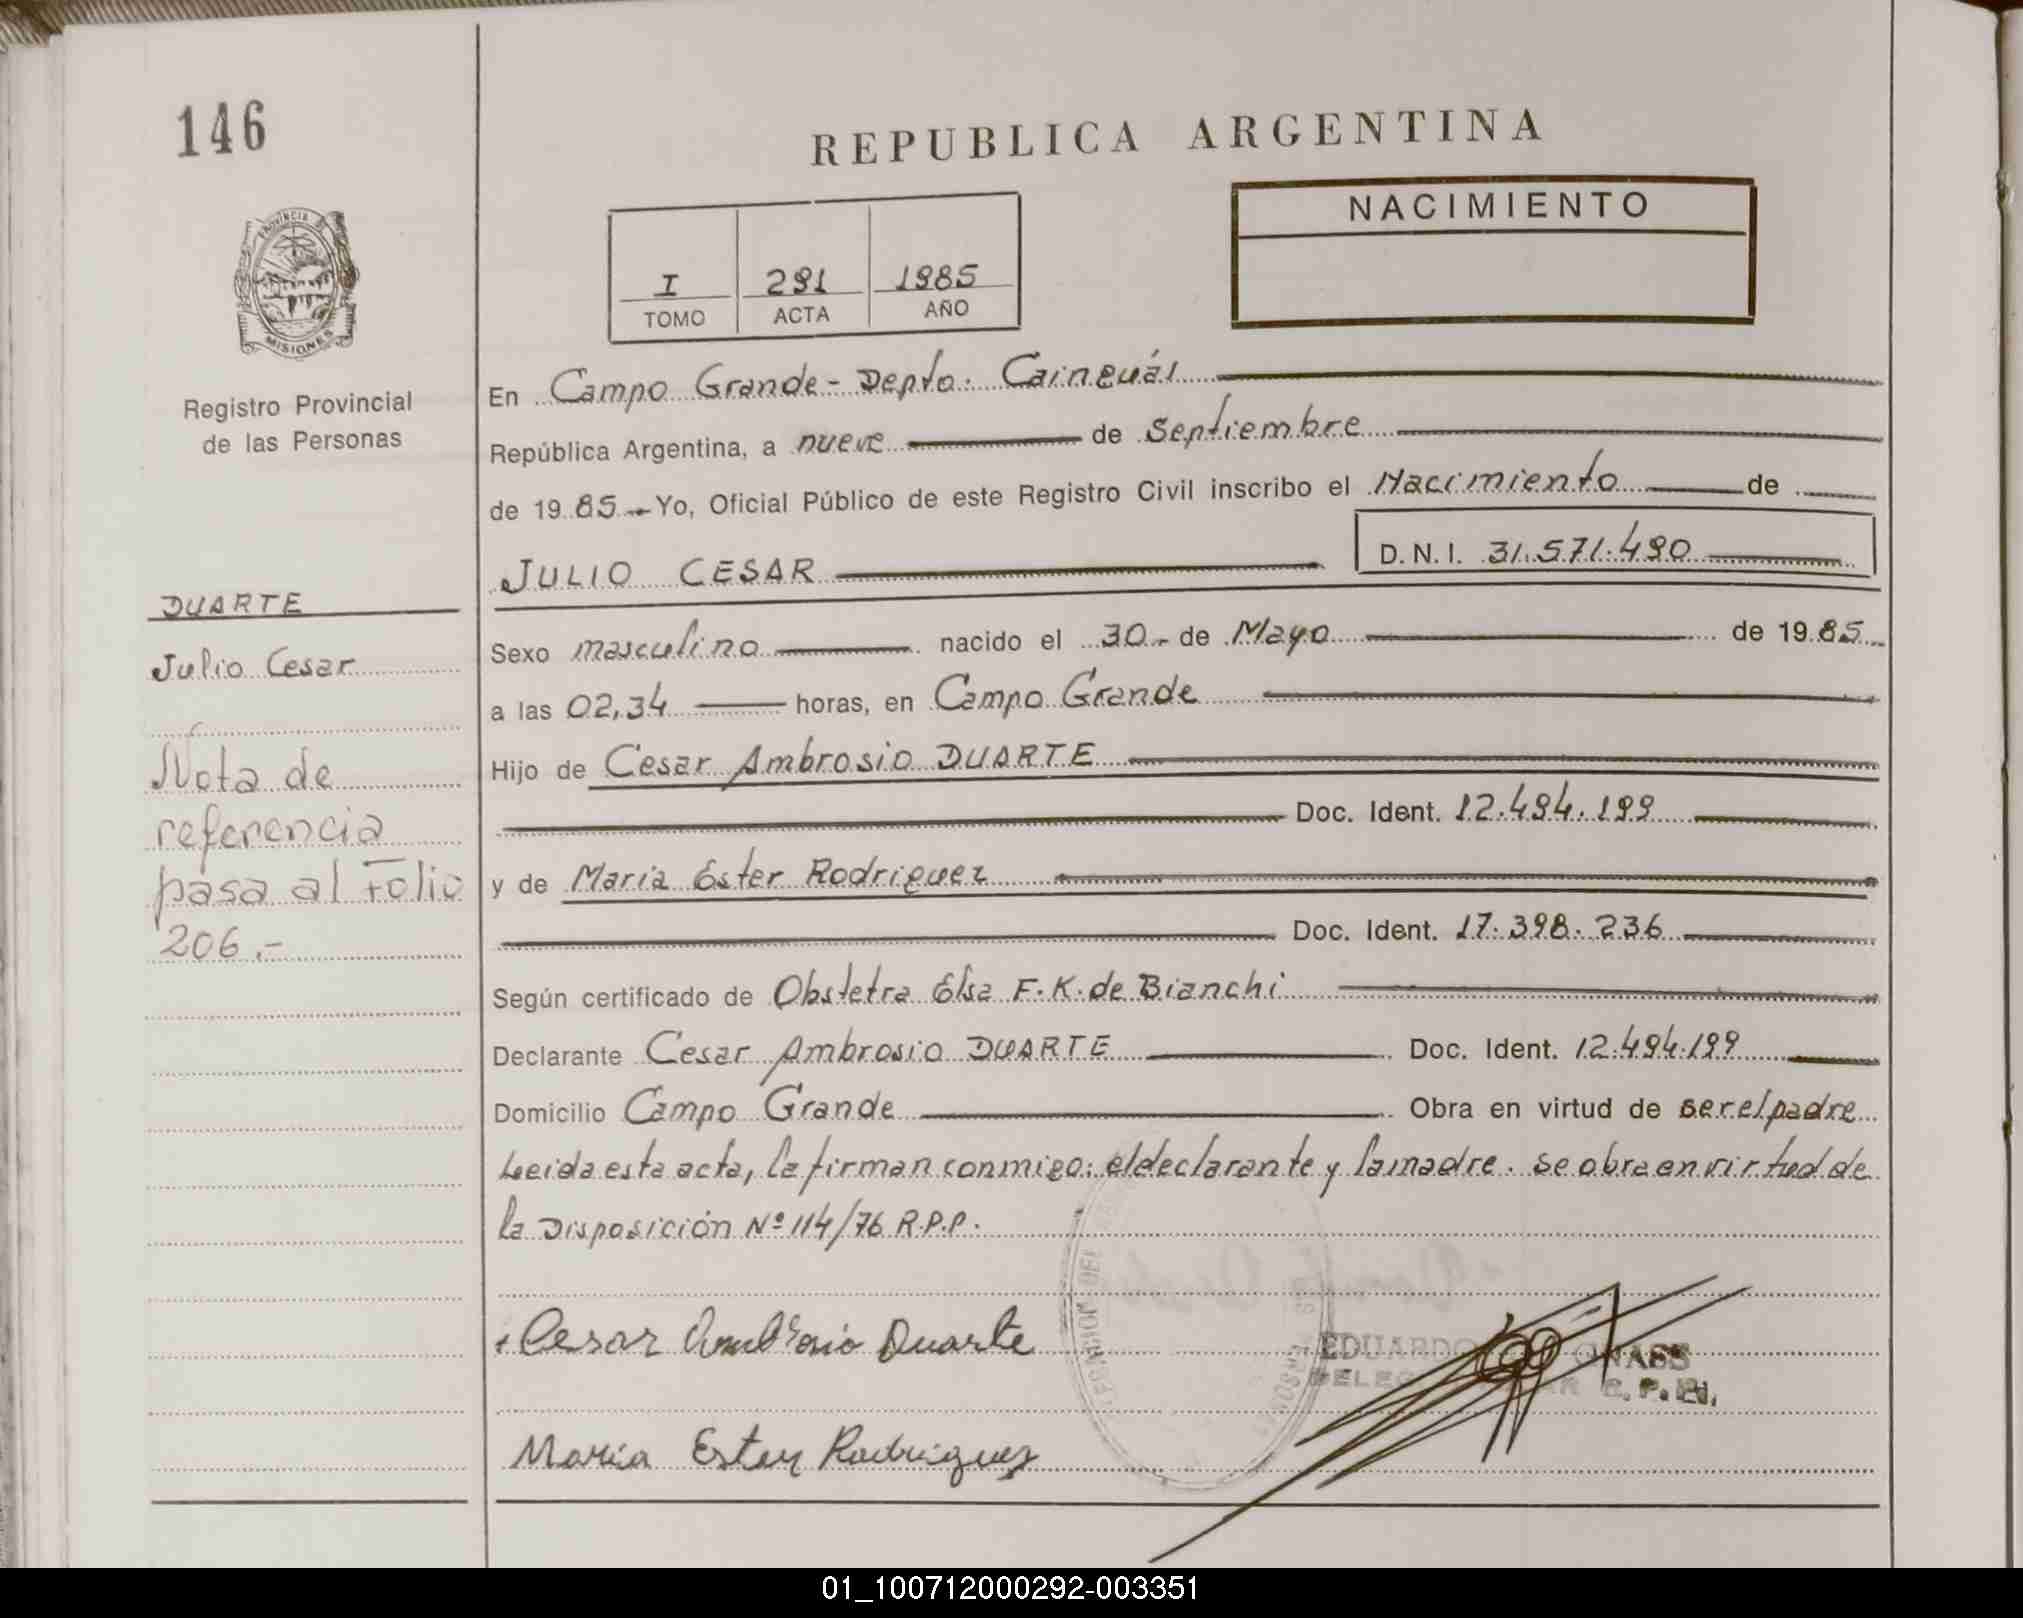 146
REPUBLICA ARGENTINA
PROVINCIA DE
MISIONES
Registro Provincial
de las Personas
I 291 1985
TOMO ACTA AÑO
NACIMIENTO
En Campo Grande - Depto. Cainguás
República Argentina, a nueve de Septiembre
de 1985 Yo, Oficial Público de este Registro Civil inscribo el Nacimiento de
JULIO CESAR D.N.I. 31.571.490
DUARTE
Julio Cesar
Nota de
referencia
pasa al Folio
206.-
Sexo masculino nacido el 30 - de Mayo de 1985
a las 02,34 horas, en Campo Grande
Hijo de Cesar Ambrosio DUARTE
Doc. Ident. 12.494.199
y de Maria Ester Rodriguez
Doc. Ident. 17.398.236
Según certificado de Obstetra Elsa F. K. de Bianchi
Declarante Cesar Ambrosio DUARTE Doc. Ident. 12.494.199
Domicilio Campo Grande Obra en virtud de ser el padre
Leida esta acta, la firman conmigo: el declarante y la madre. Se obra en virtud de
la Disposición Nº 114/76 R.P.P.
Cesar Ambrosio Duarte
EDUARDO
R. P. P.
Maria Ester Rodriguez
01_100712000292-003351